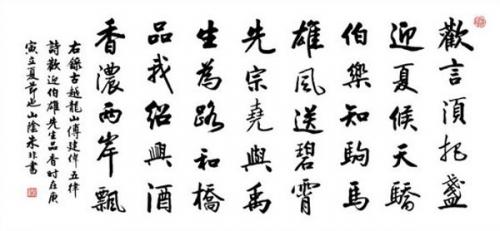 歡言須把盞
迎夏候天驕
伯樂知駒馬
雄風送碧霄
先宗堯與禹
生為路和橋
品我紹興酒
香濃兩岸飄
右錄古越龍山傅建偉五律
詩歡迎伯雄先生品香時在庚
寅立夏節也山陰朱非書